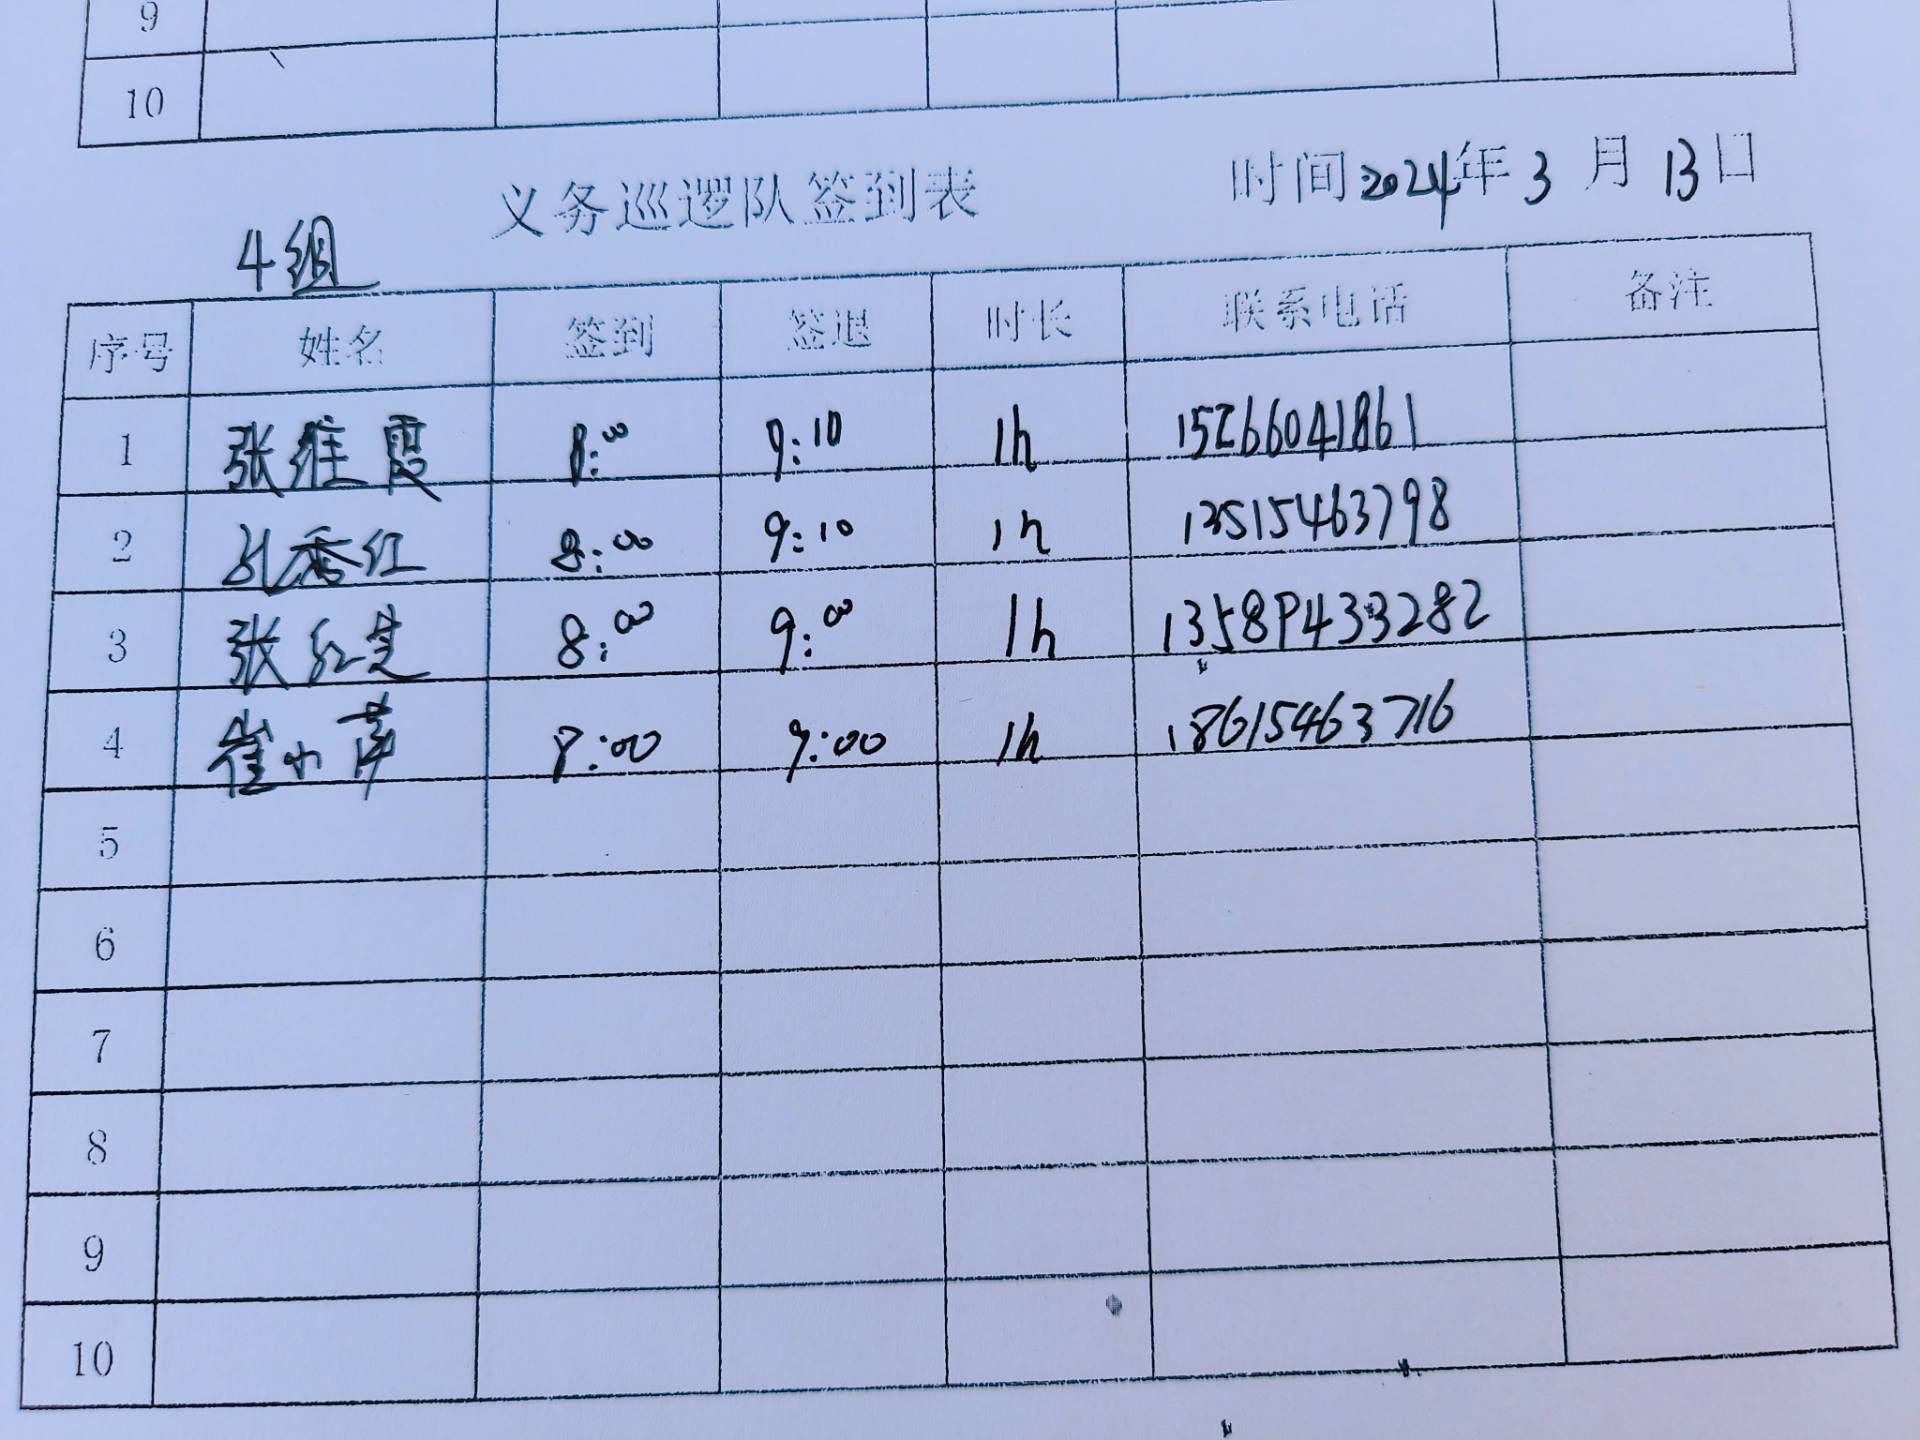 9
10
义务巡逻队签到表 时间2024年3月13日
4组
序号 姓名 签到 签退 时长 联系电话 备注
1 张维霞 8:00 9:10 1h 15266041861
2 孔秀红 8:00 9:10 1h 13515463798
3 张红芝 8:00 9:00 1h 13589433282
4 崔小萍 8:00 9:00 1h 18615463716
5
6
7
8
9
10